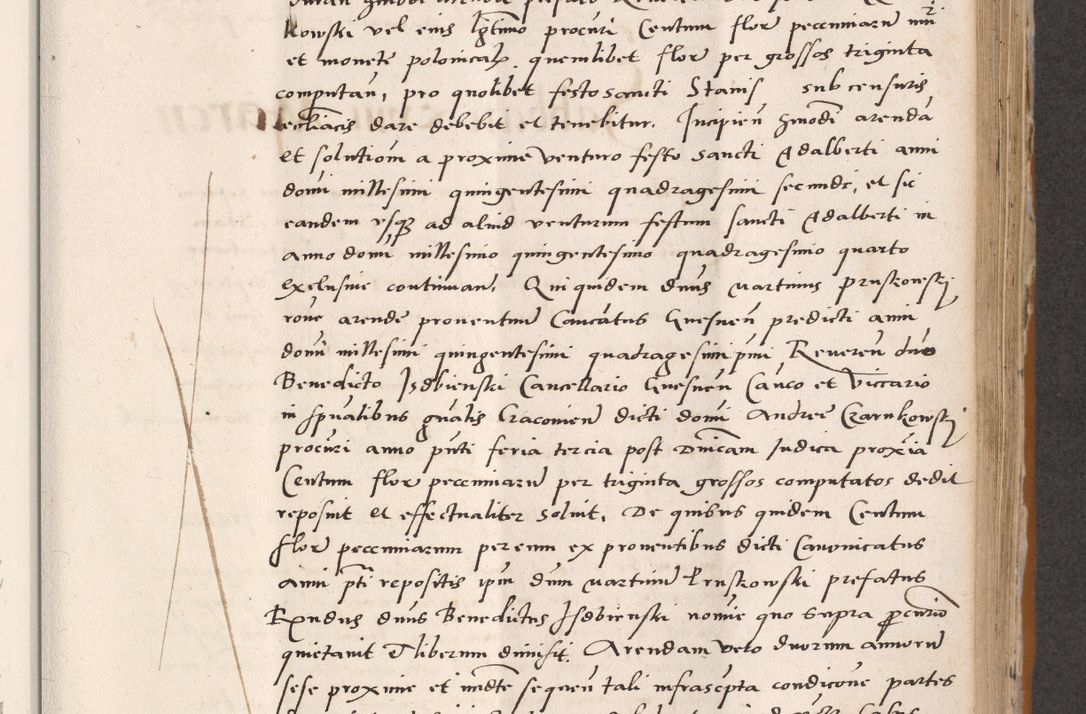 kowski vel eius lgtimo procuri Centum flor pecuniarum nui
et monete polonicalis, quemlibet flor per grossos triginta
computan, pro quolibet festo sancti Stanis sub censuris
eccliacis dare debebit et tenebitur. Incipien hmodi arenda
et solutiom a proxime venturo festo sancti Adalberti anni
domi millesimi quingentesimi quadragesimi secundi, et sic
eandem usque ad aliud venturum festum sancti Adalberti in
anno domi millesimo quingentesimo quadragesimo quarto
exclusive continuan. Qui quidem dnus Martinus Pruskowskj
rone arende proventum Canctatus Gnesnen predicti anni
domi millesimi quingentesimi quadragesimi pmi Reveren dno
Benedicto Isdbienski Cancellario Gnesnen Canco et Viccario
in spualibus gnalis Craconien dicti domi Andree Czarnkowskj
procuri anno pnti feria tercia post Dnicam Judica proxia
Centum flor pecuniarum per triginta grossos computatos dedit
reposuit et effectualiter solvit. De quibus quidem Centum
flor pecuniarum per eum ex proventibus dicti Canonicatus
anni pti repositis ipm dnm Martinum Pruskowski prefatus
Rxndus dnus Benedictus Isdbienski nomie quo supra procurio
quietavit et liberum dimisit. Arendam vero duorum annorum
sese proxime et imdte sequen tali infrascpta condicione partes